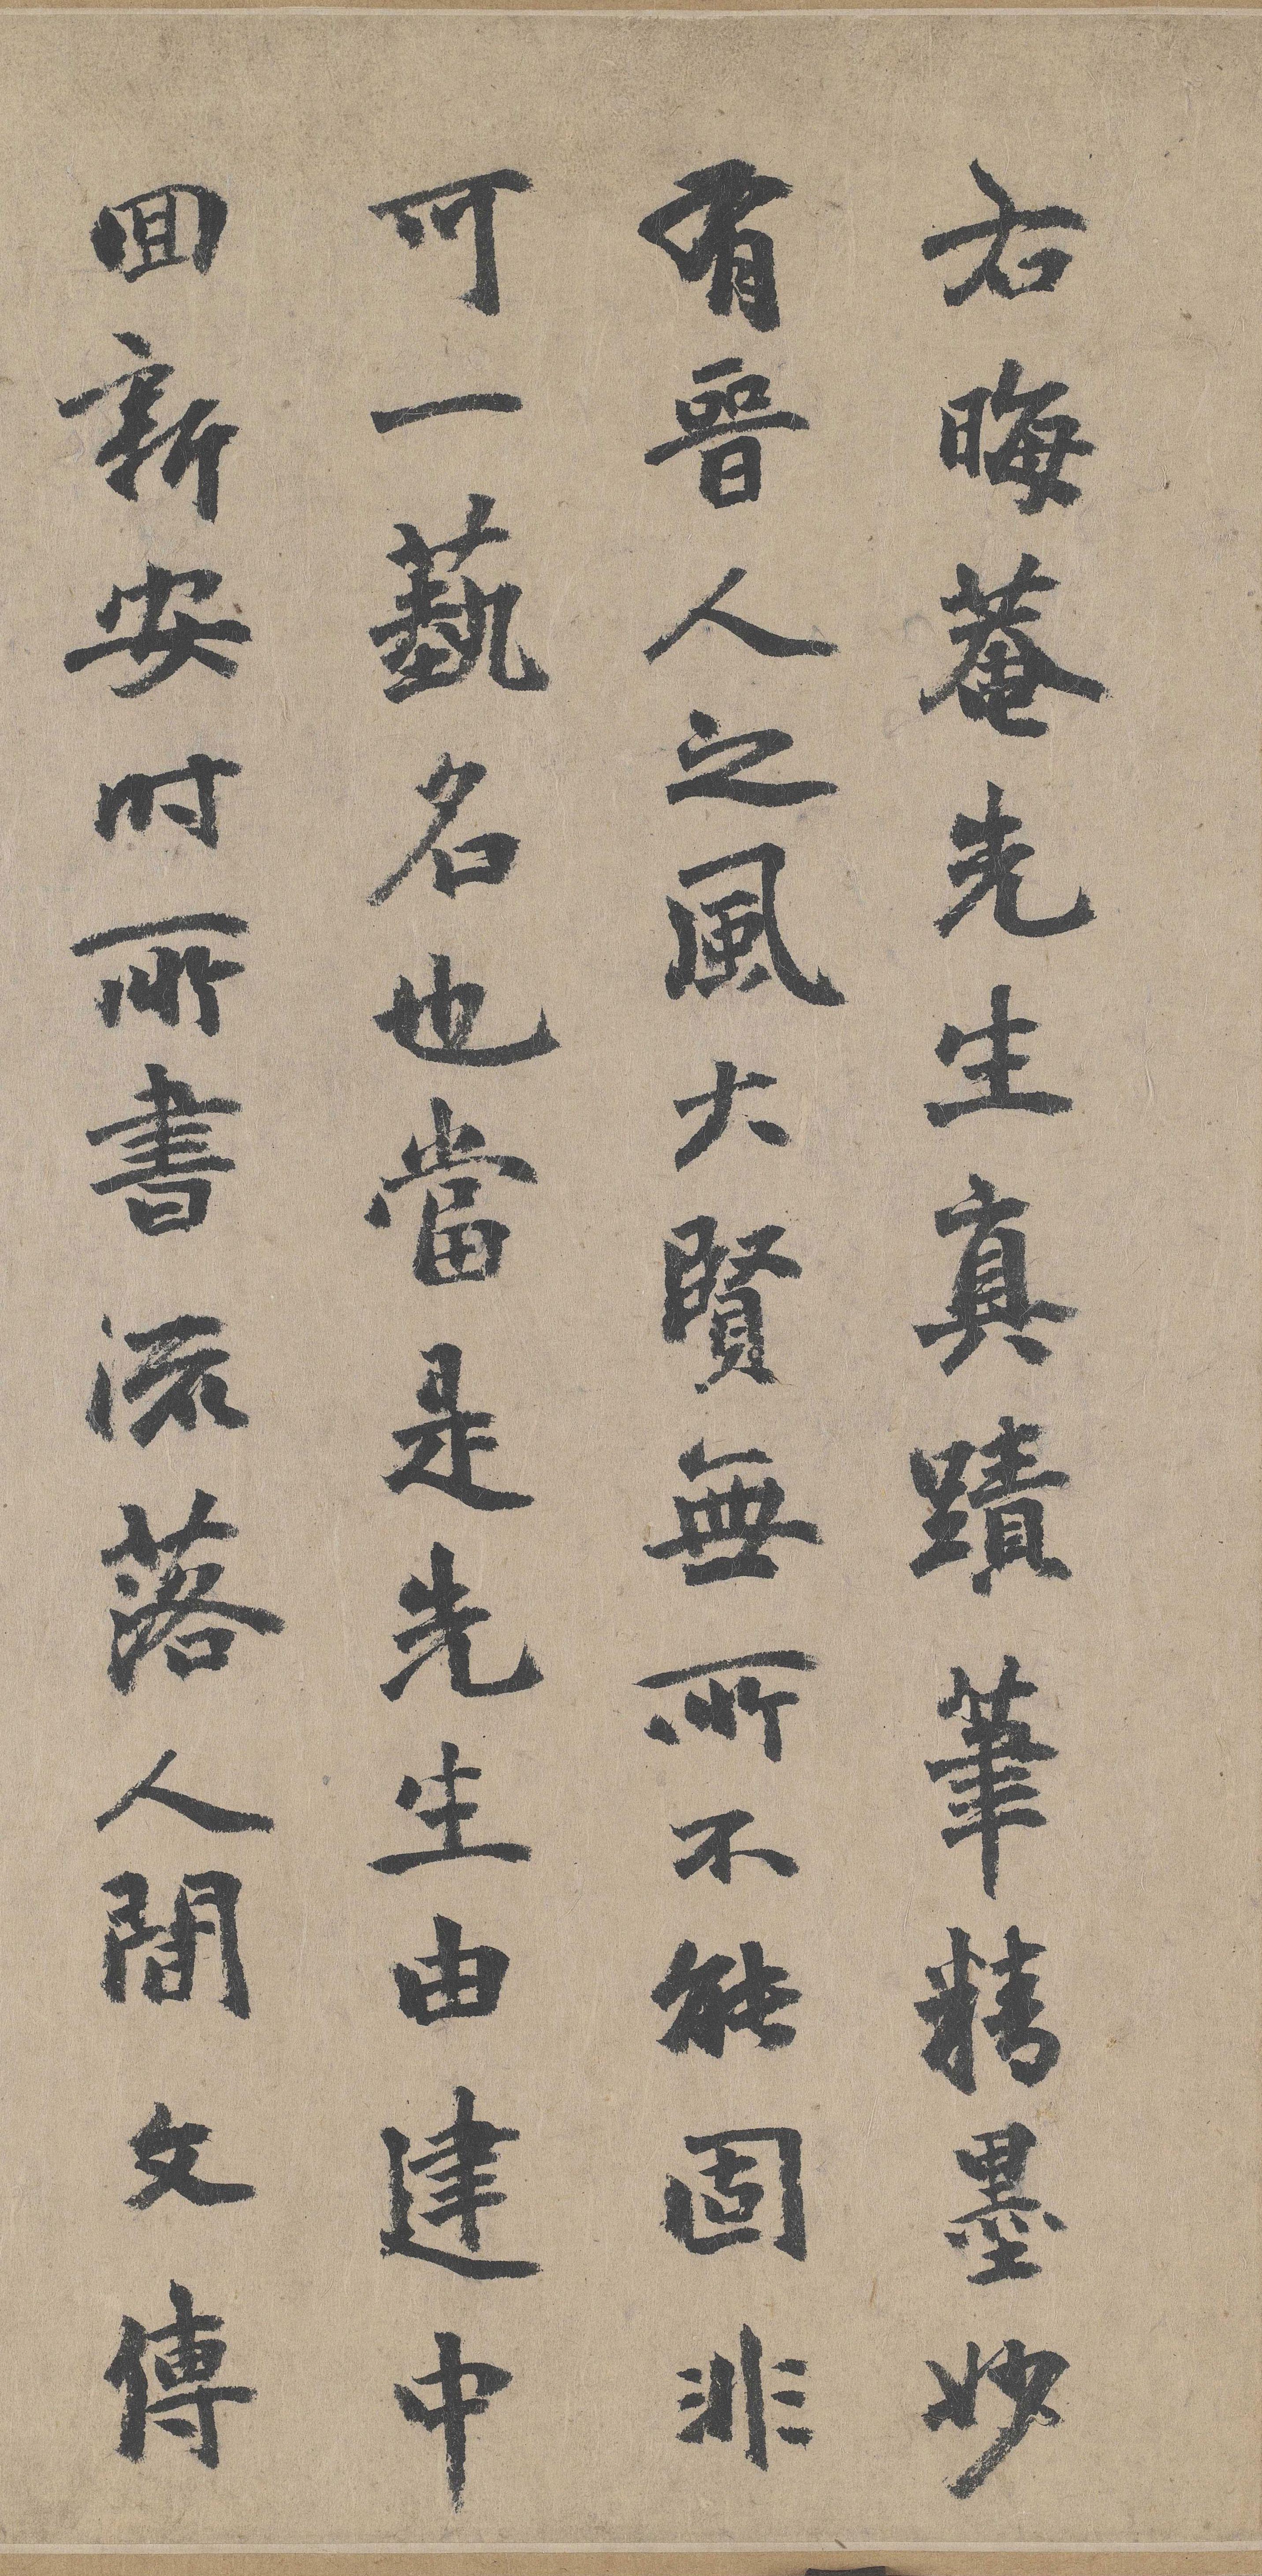 右晦菴先生真蹟筆精墨妙
有晉人之風大賢無所不能固非
可一藝名也當是先生由建中
囬新安时所書流落人間文傳